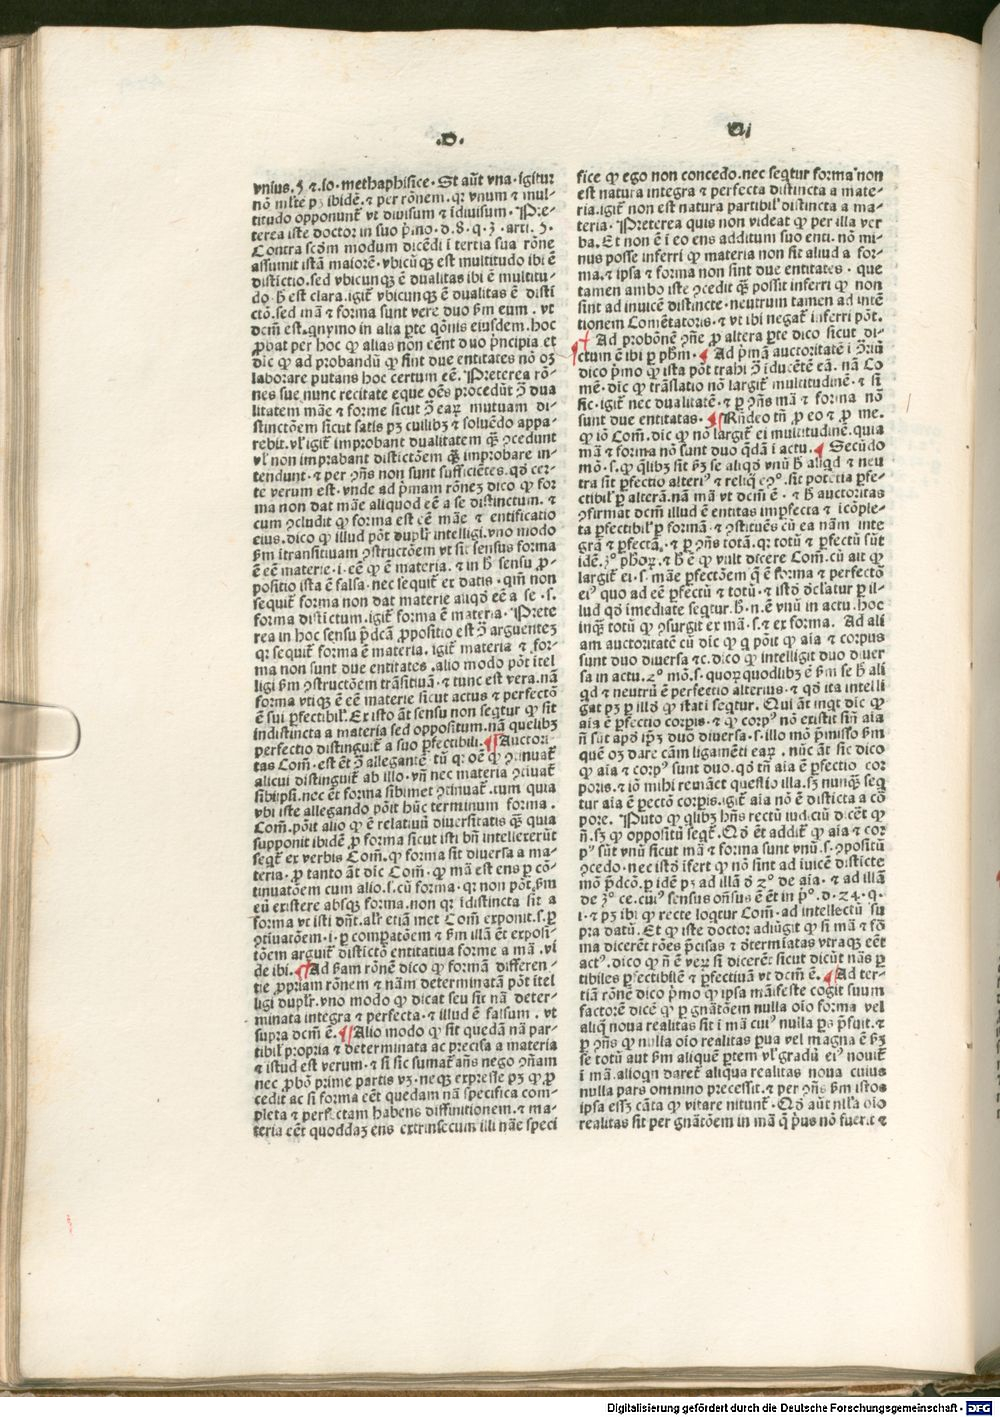 .D. VI
vnius.5 ⁊.10.methaphisice. St aūt vna.igitur
nō mlte pꝫ ibidē.⁊ per rōnem.qꝛ vnum ⁊ mul-
titudo opponunt̃ vt diuisum ⁊ īdiuisum. Pre-
terea iste doctor in suo p̃ino.d.8.q.ꝫ.arti.5.
Contra scd̄m modum dicēdi ī tertia sua rōne
assumit istā maiorē.vbicūqꝫ est multitudo ibi ē
distictio.sed vbicunqꝫ ē dualitas ibi ē multitu-
do.h̄ est clara.igit̃ vbicunqꝫ ē dualitas ē disti
ctō.sed mā ⁊ forma sunt vere duo ẜm eum.vt
dcm̄ est.qnymo in alia p̱te qōnis eiusdem.hoc
ꝓbat per hoc ꝙ alias non eēnt duo p̃ncipia et
dic̄ ꝙ ad probandū ꝙ sint due entitates nō oꝫ
laborare putans hoc certum eē. Preterea rō-
nes sue nunc recitate eque oēs procedūt ↄ̄ dua
litatem māe ⁊ forme sicut ↄ̄ eaꝝ mutuam di-
stinctōem sicut satis pꝫ cuilibꝫ ⁊ soluēdo appa-
rebit.vl̓ igit̃ improbant dualitatem quā ↄcedunt
vl̓ non improbant distictōem quā improbare in-
tendunt.⁊ per ↄn̄s non sunt sufficiētes.qd̄ cer-
te verum est.vnde ad p̃mam rōneꝫ dico ꝙ for
ma non dat māe aliquod eē a se distinctum.⁊
cum ↄcludit ꝙ forma est eē māe ⁊ entificatio
eius.dico ꝙ illud pōt duplr̄ intelligi.vno modo
ẜm ītransitiuam ↄstructōem vt sit sensus forma
ē eē materie.i.eē ꝙ ē materia.⁊ in h̄ sensu ꝓ-
positio ista ē falsa.nec sequit̃ ex datis.qm̄ non
sequit̃ forma non dat materie aliqd̄ eē a se.s.
forma distictum.igit̃ forma ē materia. Prete
rea in hoc sensu p̃dcā ꝓpositio est ↄ̄ arguenteꝫ
qꝛ sequit̃ forma ē materia.igit̃ materia ⁊ for-
ma non sunt due entitates.alio modo pōt itel
ligi ẜm ↄstructōem trāsitiuā.⁊ tunc est vera.nā
forma vtiqꝫ ē eē materie sicut actus ⁊ perfectō
ē sui ꝑfectibil̓. Ex isto āt sensu non seqt̃ur ꝙ sit
indistincta a materia sed oppositum.nā quelibꝫ
perfectio distinguit̃ a suo ꝑfectibili. ¶ Auctori-
tas Com̄.est ēt ↄ̄ allegantē tū qꝛ oē ꝙ ↄtinuat̃
alicui distinguit̃ ab illo.vn̄ nec materia ↄtiuat̃
sibiipsi.nec ēt forma sibimet ↄtinuat̃.tum quia
vbi iste allegando pōit hūc terminum forma.
Com̄.pōit alio ꝙ ē relatiuū diuersitatis quā quia
supponit ibidē ꝓ forma sicut isti bn̄ intellexerūt
seqt̃ ex verbis Com̄.ꝙ forma sit diuersa a ma-
teria.ꝓ tanto āt dic̄ Com̄.ꝙ mā est ens ꝑ cō-
tinuatōem cum alio.s.cū forma.qꝛ non pōt ẜm
eū existere absqꝫ forma.non qꝛ īdistincta sit a
forma vt isti dn̄t.alr̄ etiā met Com̄ exponit.s.ꝑ
ↄtiuatōem.i.ꝑ comparatōem ⁊ ẜm illā ēt exposi-
tōem arguit̃ distictō entitatiua forme a mā.vi
de ibi. ¶ Ad ẜam rōnē dico ꝙ formā differen-
tie ꝓpriam rōnem ⁊ nām determinatā pōt itel
ligi duplr̄.vno modo ꝙ dicat seu sit nā deter-
minata integra ⁊ perfecta.⁊ illud ē falsum.vt
supra dcm̄ ē. ¶ Alio modo ꝙ sit quedā nā par-
tibil̓ propria ⁊ determinata ac precisa a materia
⁊ istud est verum.⁊ si sic sumat̃ an̄s nego ↄn̄am
nec ꝓbō prime partis vꝫ.neqꝫ expresse pꝫ ꝙ ꝓ
cedit ac si forma eēt quedam nā specifica com-
pleta ⁊ perfectam habens diffinitionem.⁊ ma-
teria eēt quoddaꝫ ens extrinsecum illi nāe speci
fice ꝙ ego non concedo.nec seqt̃ur forma non
est natura integra ⁊ perfecta distincta a mate-
ria.igit̃ non est natura partibil̓ distincta a ma-
teria. Preterea quis non videat ꝙ per illa ver
ba. Et non ē ī eo ens additum suo enti.nō mi-
nus posse inferri ꝙ materia non sit aliud a for-
ma.⁊ ipsa ⁊ forma non sint due entitates.que
tamen ambo iste ↄcedit quā possit inferri ꝙ non
sint ad inuicē distincte.neutrum tamen ad intē
tionem Comētatoris.⁊ vt ibi negat̃ inferri pōt.
¶ Ad probōnē ↄn̄e ꝓ altera ꝑte dico sicut di-
ctum ē ibi ꝑ ph̄m. ¶ Ad p̃mā auctoritatē ī ↄ̄riū
dico p̃mo ꝙ ista pōt trahi ↄ̄ īducētē eā.nā Co
mē.dic̄ ꝙ trāslatio nō largit̃ multitudinē.⁊ si
sic.igit̃ nec dualitatē.⁊ ꝑ ↄn̄s mā ⁊ forma nō
sunt due entitates. ¶ Rn̄deo tn̄ ꝓ eo ⁊ ꝓ me.
ꝙ iō Com̄.dic̄ ꝙ nō largit̃ ei multitudinē.quia
mā ⁊ forma nō sunt duo qdā ī actu. ¶ Secūdo
mō.s.ꝙ qlibꝫ sit ẜꝫ se aliqd vnū h̄ aliqd ⁊ neu
tra sit ꝑfectio alteriꝰ ⁊ reliq̄ eꝰ.sit potētia ꝑfe-
ctibil̓ ꝑ alterā.nā mā vt dcm̄ ē.⁊ h̄ auctoritas
ↄfirmat dcm̄ illud ē entitas imꝑfecta ⁊ icōple-
ta ꝑfectibil̓ ꝑ formā.⁊ ↄstituēs cū ea nām inte
grā ⁊ ꝑfectā.⁊ ꝑ ↄn̄s totā.qꝛ totū ⁊ ꝑfectū sūt
idē.ꝫꝰ ph̄oꝝ.⁊ h̄ ē ꝙ vult dicere Com̄.cū ait ꝙ
largit̃ ei.s.māe ꝑfectōem q̄ ē forma ⁊ perfectō
eiꝰ quo ad eē ꝑfectū ⁊ totū.⁊ istō dclat̃ur ꝑ il-
lud qd̄ īmediate seqt̃ur.h̄.n.ē vnū in actu.hoc
inqt̃ totū ꝙ ↄsurgit ex mā.s.⁊ ex forma. Ad ali
am auctoritatē cū dic̄ ꝙ q pōit ꝙ aīa ⁊ corpus
sunt duo diuersa ⁊c.dico ꝙ intelligit duo diuer
sa in actu.2ꝰ mō.s.quoꝝ quodlibꝫ ē ẜm se h̄ ali
qd ⁊ neutrū ē perfectio alterius.⁊ qd̄ ita intelli
gat pꝫ ꝑ illd̄ ꝙ stati seqt̃ur. Qui āt inqt dic̄ ꝙ
aīa ē ꝑfectio corpis.⁊ ꝙ corpꝰ nō existit sn̄ aīa
n̄ sūt apd̄ ip̄ꝫ duo diuersa.s.illo mō p̃misso ẜm
quē oꝫ dare cām ligamēti eaꝝ.nūc āt sic dico
ꝙ aīa ⁊ corpꝰ sunt duo.qd̄ tn̄ aīa ē ꝑfectio cor
poris.⁊ iō mihi remāet questio illa.sꝫ nunqꝫ seq
tur aīa ē ꝑectō corpis.igit̃ aīa nō ē disticta a cō
pore. Puto ꝙ qlibꝫ hn̄s rectū iudiciū dicēt ꝙ
n̄.sꝫ ꝙ oppositū seqt̃. Qd̄ ēt addit̃ ꝙ aīa ⁊ cor
pꝰ sūt vnū sicut mā ⁊ forma sunt vnū.s.ↄpositū
ↄcedo.nec istd̄ ifert ꝙ nō sint ad iuicē disticte
mō p̃dcō.ꝑ idē pꝫ ad illā ð 2ꝰ de aīa.⁊ ad illā
de ꝫꝰ ce.cuiꝰ sensus oñsus ē ēt in p̃ꝰ.d.24.q.
i.⁊ pꝫ ibi ꝙ recte loqt̃ur Com̄.ad intellectū su
pra datū. Et ꝙ iste doctor adiūgit ꝙ si mā ⁊ fō
ma dicerēt rōes p̃cisas ⁊ dterm̄iatas vtraqꝫ eēt
actꝰ.dico ꝙ n̄ ē veꝝ si dicerēt̃ sicut dicūt nās ꝑ
tibiles ꝑfectibilē ⁊ ꝑfectiuā vt dcm̄ ē. ¶ Ad ter-
tiā rōnē dico p̃mo ꝙ ipsa māifeste cogit suum
factorē dicē ꝙ ꝑ gnātōem nulla oīo forma vel
aliq̄ noua realitas sit ī mā cuiꝰ nulla ꝑs p̃fuit.⁊
ꝑ ↄn̄s ꝙ nulla oīo realitas ꝑua vel magna ē ẜꝫ
se totū aut ẜm aliquē ꝑtem vl̓ gradū eiꝰ nouit̃
ī mā.alioqn daret̃ aliqua realitas noua cuius
nulla pars omnino precessit.⁊ per ↄn̄s ẜm istos
ipsa esseꝫ cāta ꝙ vitare nitunt̃. Qd̄ aūt nlla oīo
realitas sit per gnātōem in mā q̄ p̃us nō fuerit ⁊
Digitalisierung gefördert durch die Deutsche Forschungsgemeinschaft - DFG